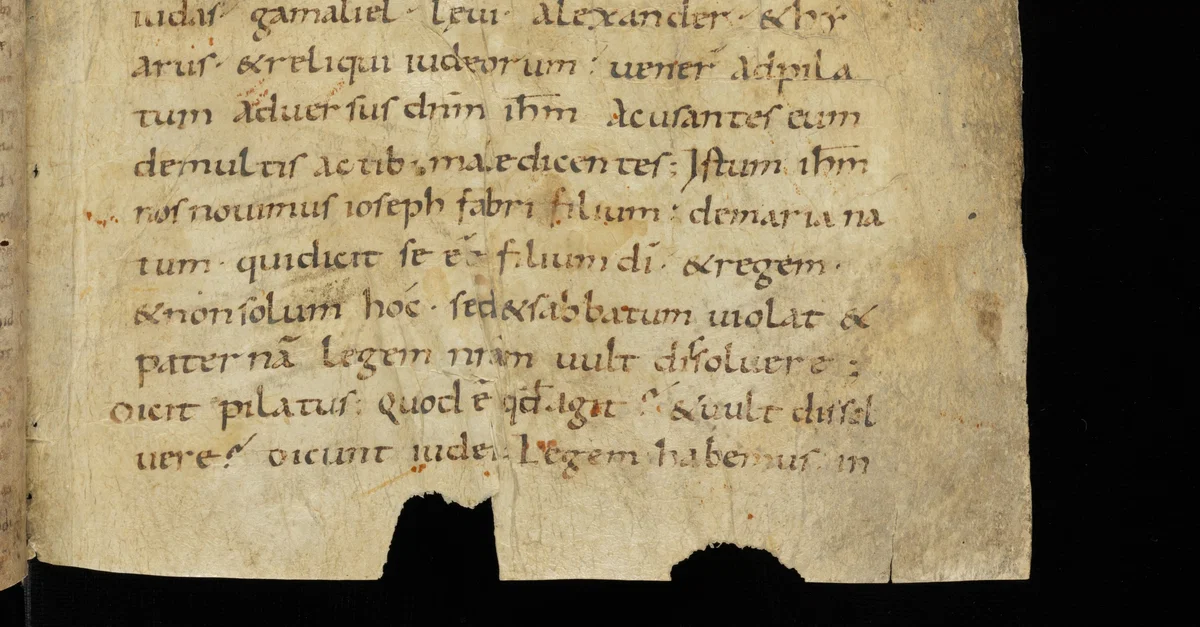 iudas · gamaliel · leui · alexander · & hy
arus · & reliqui iudeorum : uener̄ ad pila
tum aduersus dn̄m ih̄m acusantes eum
demultis actib; maledicentes ; Istum ih̄m
nos nouimus ioseph fabri filium : demaria na
tum · qui dicit se eē filium dī · & regem ·
& non solum hoc · sed & sabbatum uiolat &
paternā legem nr̄am uult dissoluere :
Dicit pilatus : Quod ē qđ agit ? & uult dissol
uere ? Dicunt iudei · Legem habemus in